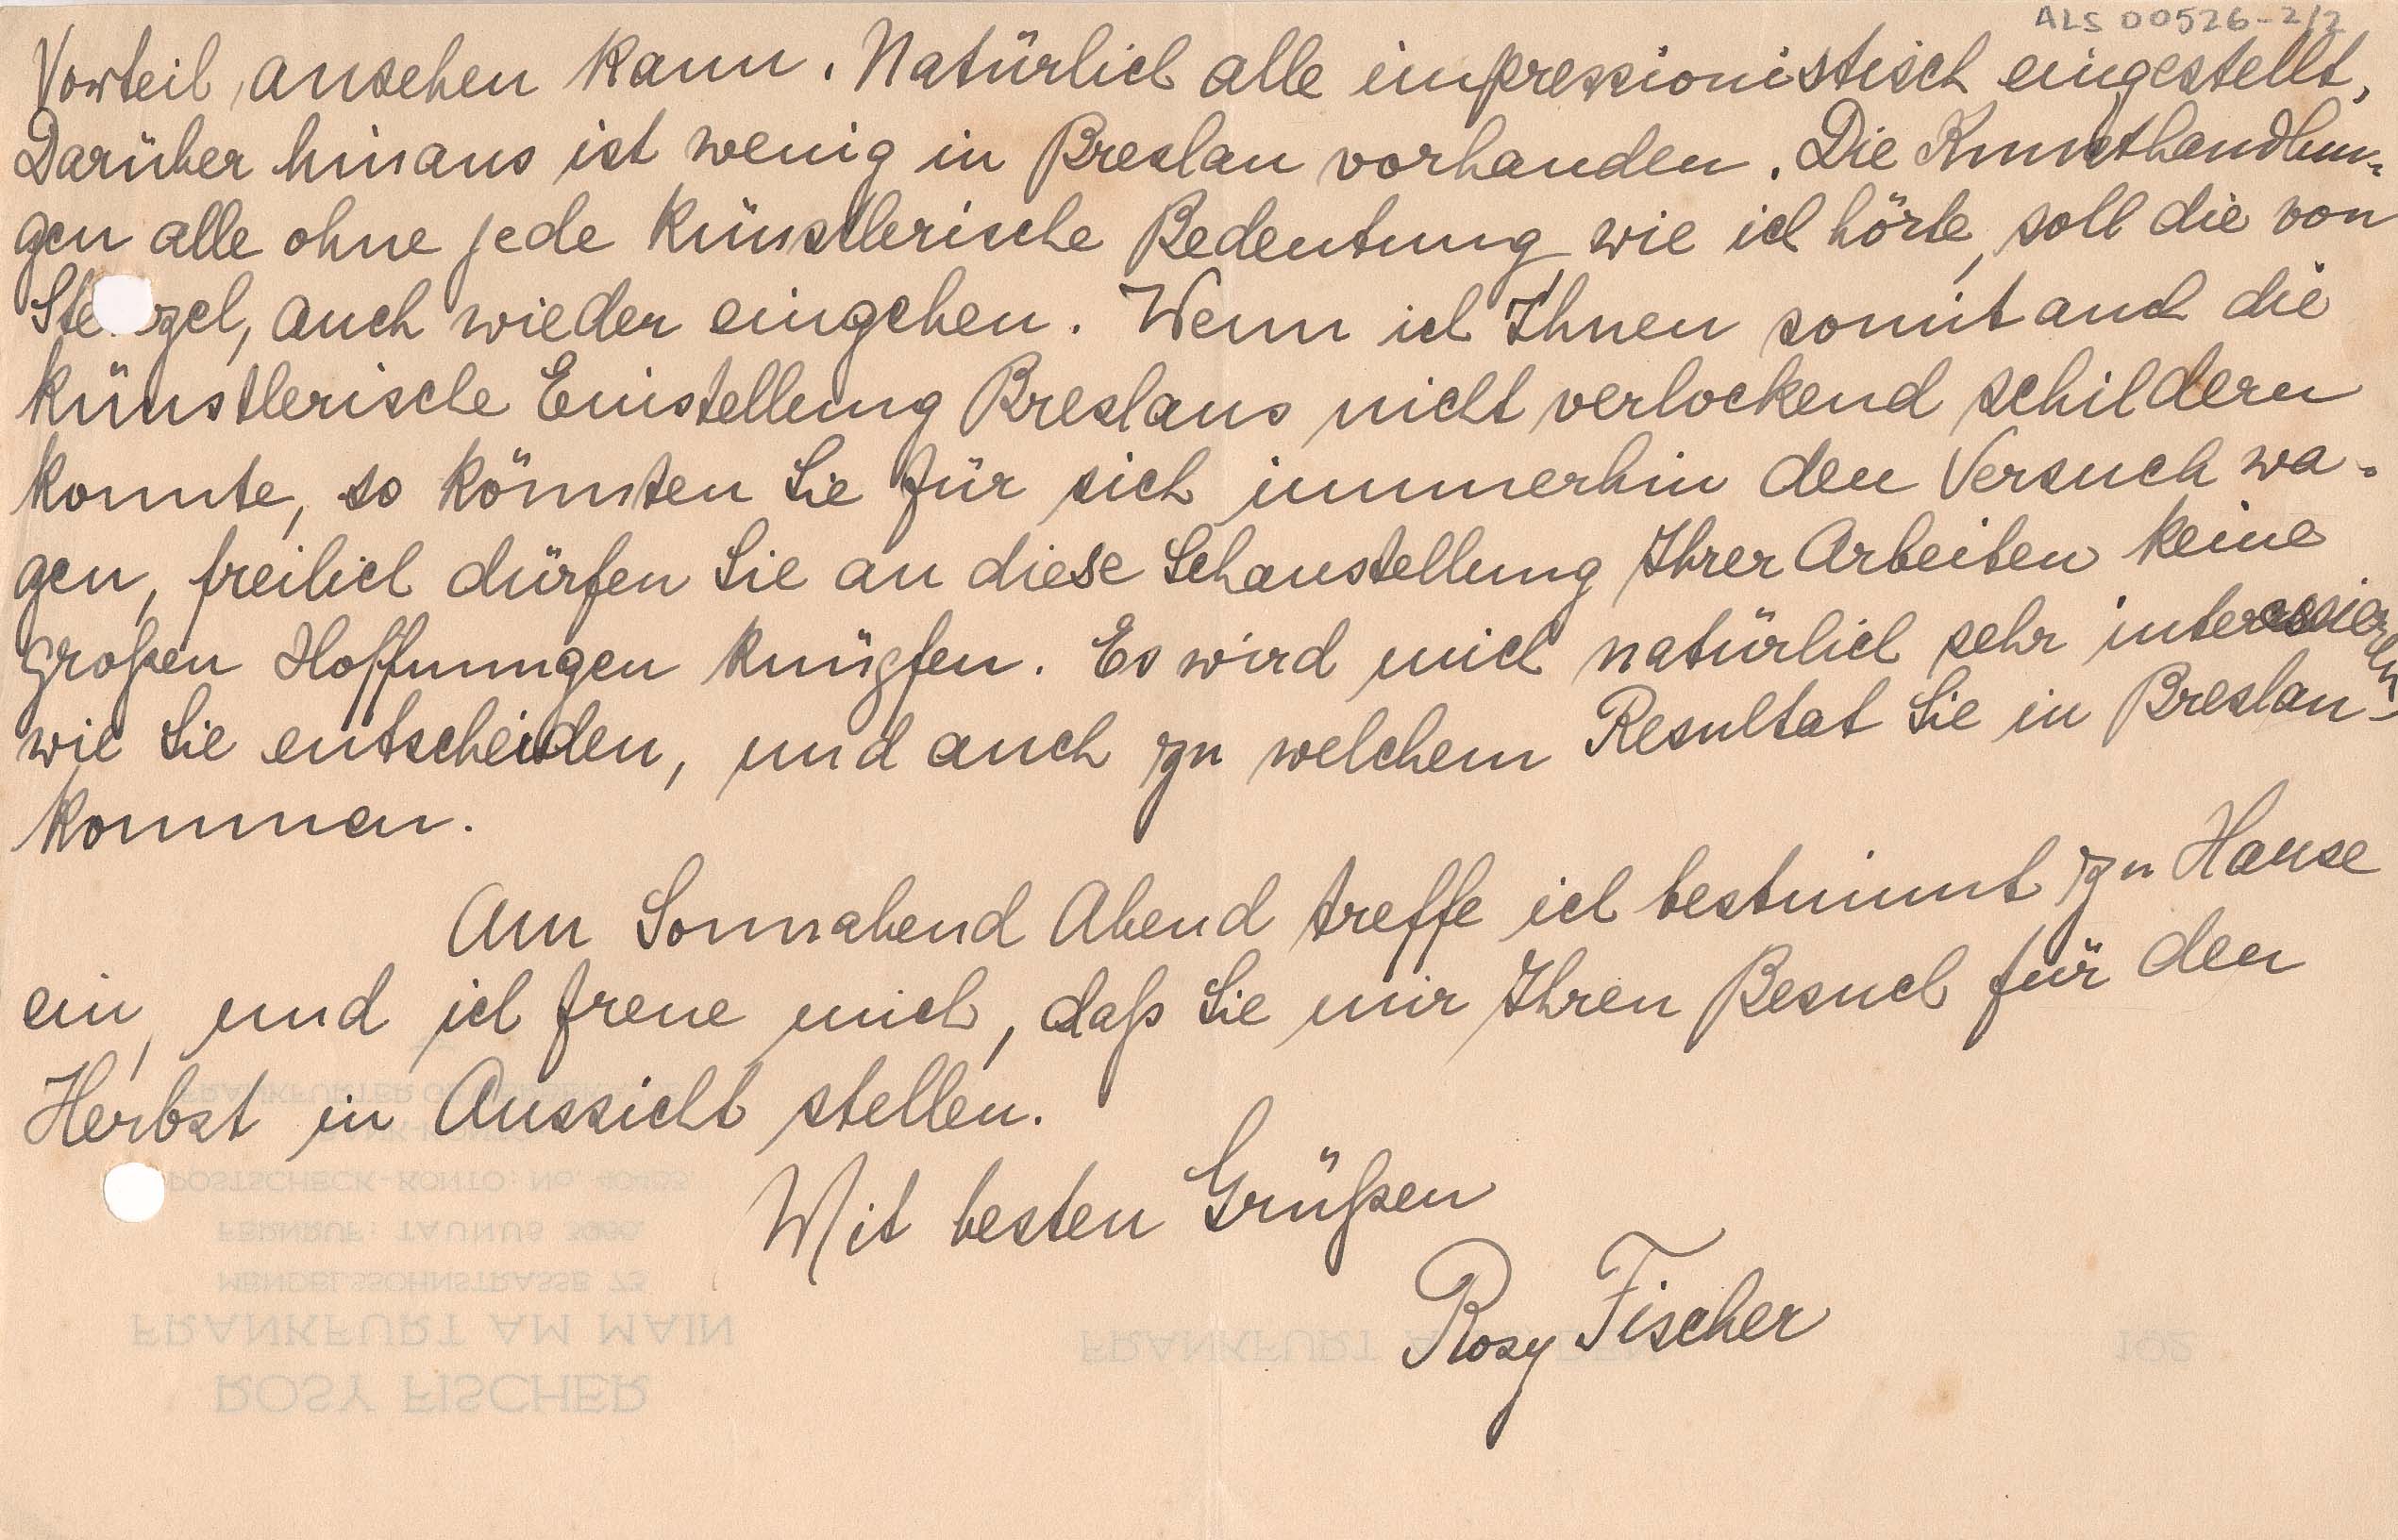 ALS 00526-2/2
Vorteil, ansehen kann. Natürlich alle impressionistisch eingestellt,
Darüber hinaus ist wenig in Breslau vorhanden. Die Kunsthandlun-
gen alle ohne jede künstlerische Bedeutung wie ich hörte, soll die von
auch wieder eingehen. Wenn ich Ihnen somit auch die
künstlerische Einstellung Breslaus nicht verlockend schildern
konnte, so könnten Sie für sich immerhin den Versuch wa-
gen, freilich dürfen Sie an diese Schaustellung Ihrer Arbeiten keine
großen Hoffnungen knüpfen. Es wird mich natürlich sehr interessieren
wie Sie entscheiden, und auch zu welchem Resultat Sie in Breslau
kommen.
Am Sonnabend Abend treffe ich bestimmt zu Hause
ein, und ich freue mich, daß Sie mir Ihren Besuch für den
Herbst in Aussicht stellen.
Mit besten Grüßen
Rosy Fischer
POSTSCHECK-KONTO: No.
FERNRUF: TAUNUS
MENDELSSOHNSTRASSE 73
FRANKFURT AM MAIN
ROSY FISCHER
FRANKFURT
192